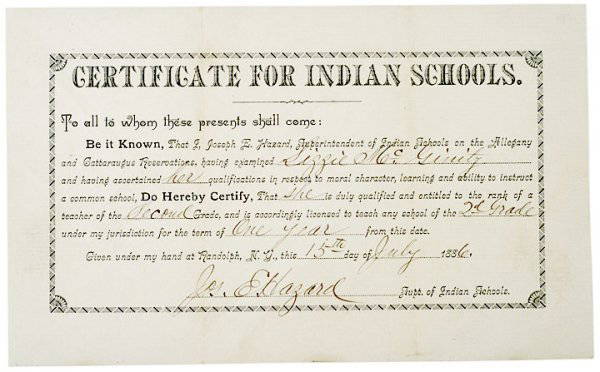 CERTIFICATE FOR INDIAN SCHOOLS.
To all to whom these presents shall come:
Be it Known, That I, Joseph E. Hazard, Superintendent of Indian Schools on the Allegany
and Cattaraugus Reservations, having examined Lizzie McGinity
and having ascertained her qualifications in respect to moral character, learning and ability to instruct
a common school, Do Hereby Certify, That she is duly qualified and entitled to the rank of a
teacher of the Second Grade, and is accordingly licensed to teach any school of the 2d Grade
under my jurisdiction for the term of One year from this date.
Given under my hand at Randolph, N. Y., this 15th day of July 1886.
Jos. E. Hazard Supt. of Indian Schools.